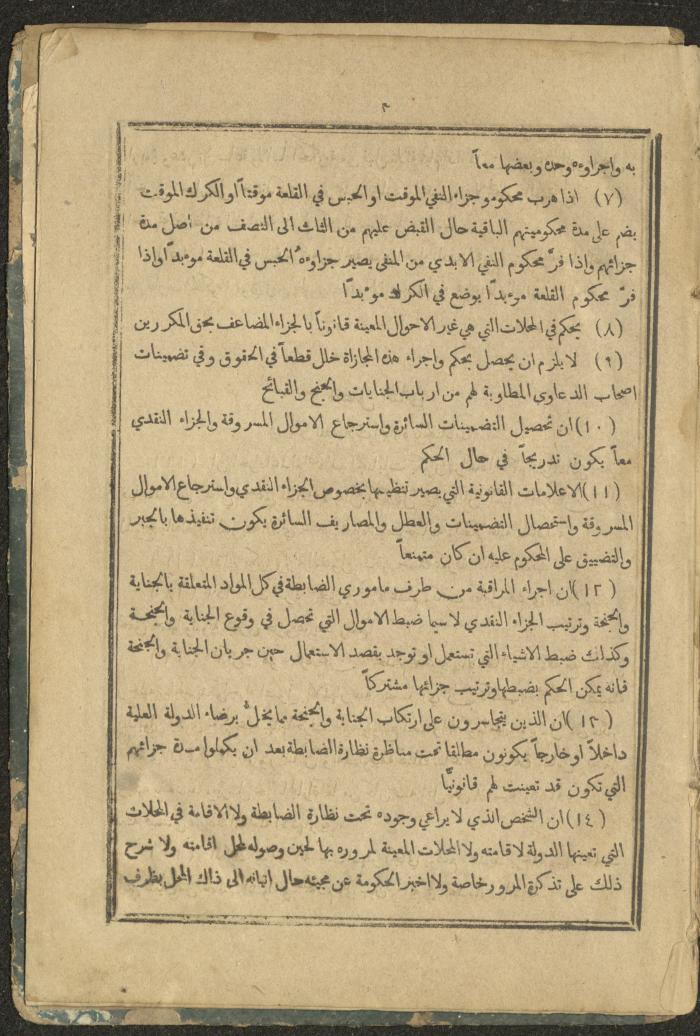 ٣
به واجراوءه وحده وبعضها معاً
(٧) اذا هرب محكومو جزاء النفي الموقت او الحبس في القلعة موقتاً او الكرك الموقت
يضم على مدة محكوميتهم الباقية حال القبض عليهم من الثلث الى النصف من اصل مدة
جزائهم واذا فرَّ محكوم النفي الابدي من المنفى يصير جزاوءهُ الحبس في القلعة موءبداً واذا
فرَّ محكوم القلعة موءبداً يوضع في الكرك موءبداً
(٨) يحكم في المحلات التي هي غير الاحوال المعينة قانوناً بالجزاء المضاعف بحق المكررين
(٩) لا يلزم ان يحصل بحكم واجراء هذه المجازاة خلل قطعاً في الحقوق وفي تضمينات
اصحاب الدعاوي المطلوبة لهم من ارباب الجنايات والجنح والقبائح
(١٠) ان تحصيل التضمينات السائرة واسترجاع الاموال المسروقة والجزاء النقدي
معاً يكون تدريجاً في حال الحكم
(١١) الاعلامات القانونية التي يصير تنظيمها بخصوص الجزاء النقدي واسترجاع الاموال
المسروقة واستحصال التضمينات والعطل والمصاريف السائرة يكون تنفيذها بالجبر
والتضييق على المحكوم عليه ان كان متمنعاً
(١٢) ان اجراء المراقبة من طرف ماموري الضابطة في كل المواد المتعلقة بالجناية
والجنحة وترتيب الجزاء النقدي لا سيما ضبط الاموال التي تحصل في وقوع الجناية والجنحة
وكذلك ضبط الاشياء التي تستعمل او توجد بقصد الاستعمال حين جريان الجناية والجنحة
فانه يمكن الحكم بضبطها وترتيب جزائها مشتركاً
(١٣) ان الذين يتجاسرون على ارتكاب الجناية والجنحة مما يخلُّ برضاء الدولة العلية
داخلاً او خارجاً يكونون مطلقا تحت مناظرة نظارة الضابطة بعد ان يكملوا مدة جزائهم
التي تكون قد تعينت لهم قانونيًّا
(١٤) ان الشخص الذي لا يراعي وجوده تحت نظارة الضابطة ولا الاقامة في المحلات
التي تعينها الدولة لاقامته ولا المحلات المعينة لمروره بها لحين وصوله لمحل اقامته ولا شرح
ذلك على تذكرة المرور خاصة ولا اخبر الحكومة عن مجيئه حال اتيانه الى ذاك المحل بظرف